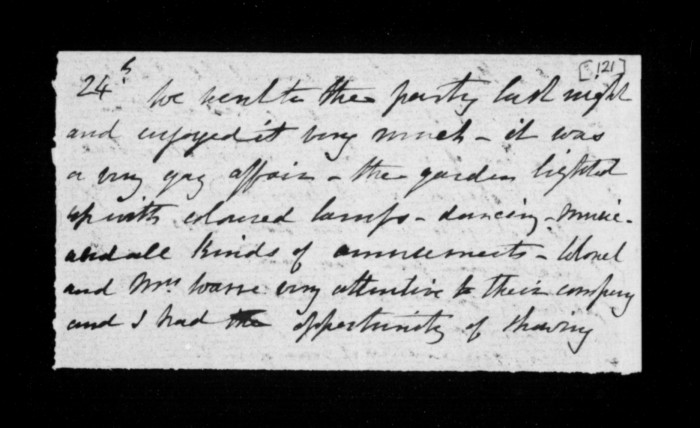 [121]
24th We went to the party last night
and enjoyed it very much - it was
a very gay affair - the garden lighted
up with coloured lamps - dancing - music -
and all kinds of amusements - Colonel
and Mrs Warre very attentive to their company
and I had the opportunity of shewing